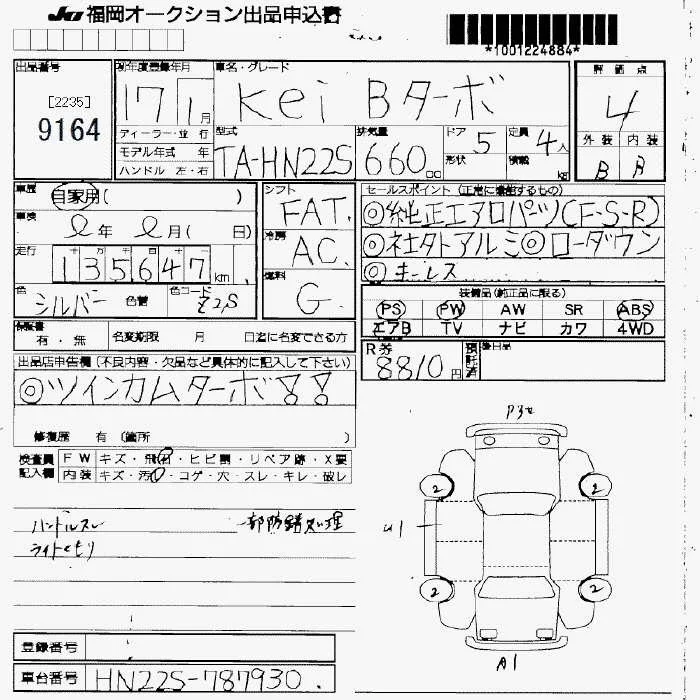 JU 福岡オークション出品申込書
*1001224884*
出品番号 [2235] 9164
初年度登録年月 17 1月
ディーラー・並 行
モデル年式 年
ハンドル 左・右
車名・グレード Kei Bターボ
型式 TA-HN22S
排気量 660cc
ドア 5
形状
定員 4人
積載 kg
評 価 点 4
外 装 内 装
B B
車歴 自家用( )
車検 年 月( 日)
走行 135647km
色 シルバー 色替 色コード Z2S
シフト FAT.
冷房 AC.
燃料 G.
セールスポイント (正常に機能するもの)
◎純正エアロパーツ(F-S-R)
◎社外アルミ◎ローダウン
◎キーレス
装備品(純正品に限る)
PS PW AW SR ABS
エアB TV ナビ カワ 4WD
保証書 有・無 名変期限 月 日迄に名変できる方
R券 8810円 預託済 後日品
出品店申告欄(不良内容・欠品など具体的に記入して下さい)
◎ツインカムターボ!!
修復歴 有 (箇所 )
検査員記入欄
FW キズ・飛石・ヒビ割・リペア跡・X要
内装 キズ・汚れ・コゲ・穴・スレ・キレ・破レ
ハンドルスレ 一部防錆処理
ライトくもり
P3
2 2
U1
2 2
A1
登録番号
車台番号 HN22S-787930.